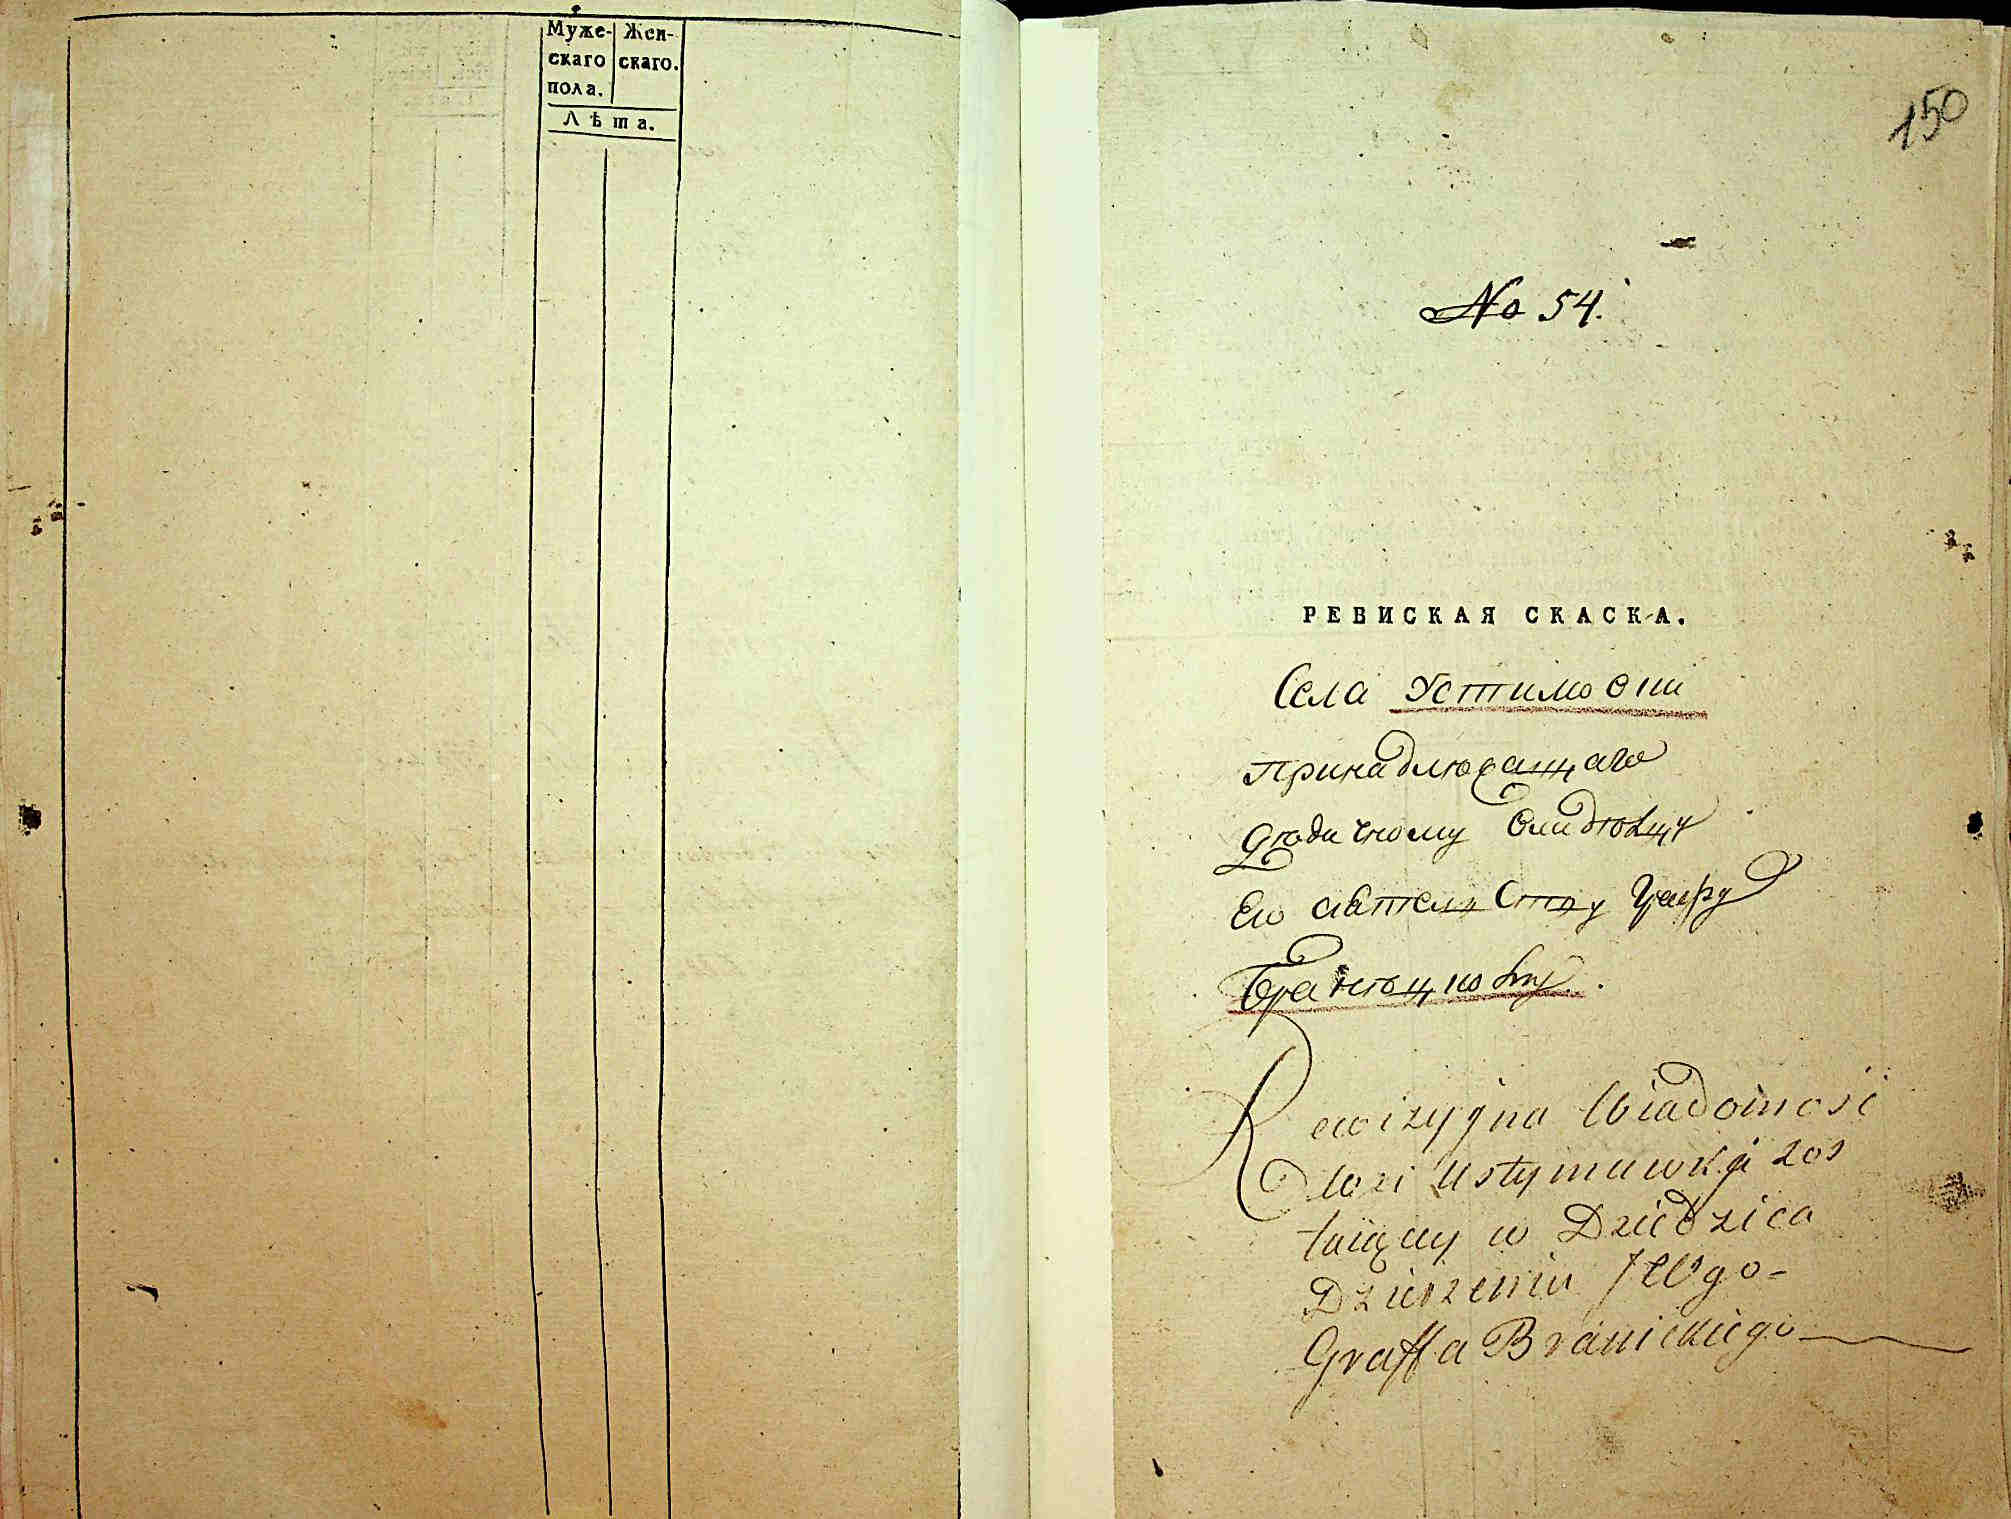 Муже-
скаго
пола.
Жен-
скаго.
Лѣта.
150
No 54.
РЕВИСКАЯ СКАСКА.
Села Устимовки
принадлежащаго
дюдичному владющу
Ею сіятелству Графу
Браницкому.
Rewizyjna Wiadomość
Wsi Ustymuwki zos
taiący w Dziedzica
Dzierzeniu JWgo-
Graffa Branickiego